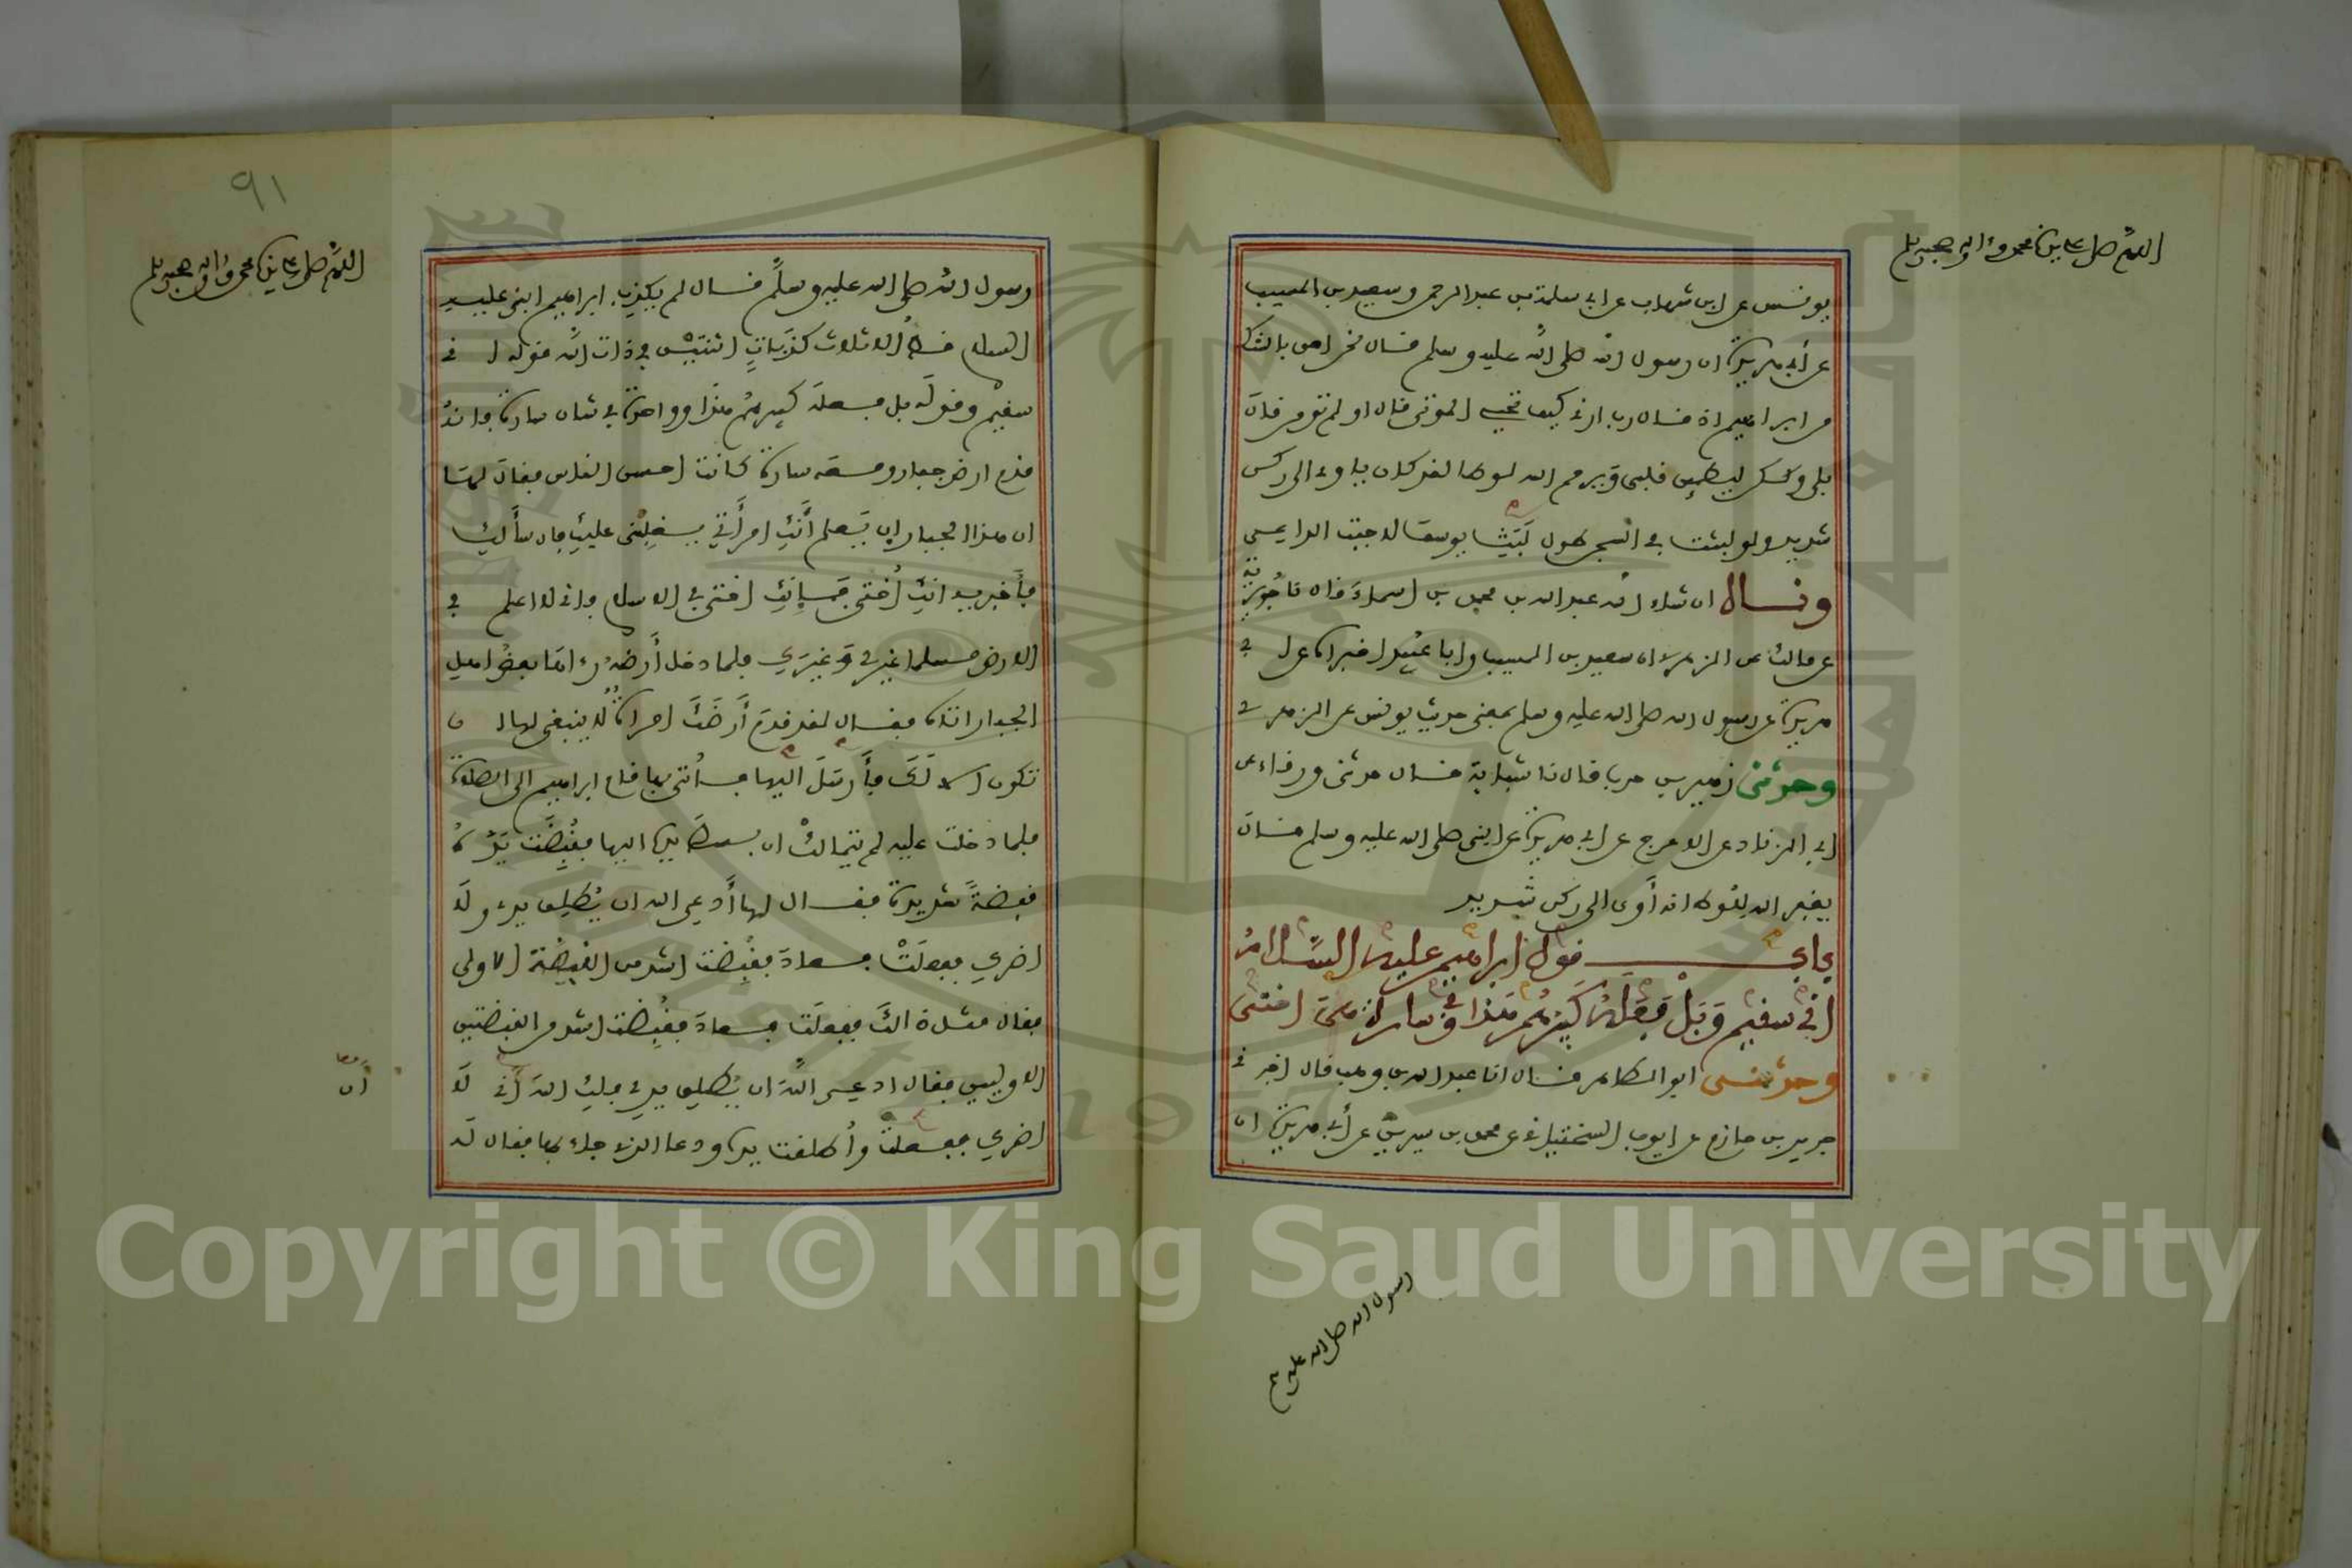 اللهم صل على سيدنا محمد وءاله وصحبه وسلم
يونس عن ابن شهاب عن ابي سلمة بن عبد الرحمن وسعيد بن المسيب
عن أبي هريرة ان رسول الله صلى الله عليه وسلم قال نحن احق بالشك
من ابراهيم اذ قال رب ارني كيف تحيي الموتى قال او لم تؤمن قال
بلى ولكن ليطمئن قلبي ويرحم الله لوطا لقد كان ياوي الى ركن
شديد ولو لبثت في السجن طول لبث يوسف لاجبت الداعي
وقال ان شاء الله عبد الله بن محمد بن اسماء قال نا جويرية
عن مالك عن الزهري ان سعيد بن المسيب وابا عبيد اخبراه عن ابي
هريرة عن رسول الله صلى الله عليه وسلم بمعنى حديث يونس عن الزهري
وحدثني زهير بن حرب قال نا شبابة قال حدثني ورقاء عن
ابي الزناد عن الاعرج عن ابي هريرة عن النبي صلى الله عليه وسلم قال
يغفر الله للوط انه أوى الى ركن شديد
باب قول ابراهيم عليه السلام
اني سقيم وبل فعله كبيرهم هذا وفي سارة هي اختي
وحدثني ابو الطاهر قال انا عبد الله بن وهب قال اخبرني
جرير بن حازم عن ايوب السختياني عن محمد بن سيرين عن أبي هريرة ان
رسول الله صلى الله عليه وسلم
٩١
اللهم صل على سيدنا محمد وءاله وصحبه وسلم
رسول الله صلى الله عليه وسلم قال لم يكذب ابراهيم النبي عليه
السلام قط الا ثلاث كذبات اثنتين في ذات الله قوله اني
سقيم وقوله بل فعله كبيرهم هذا وواحدة في شان سارة فانه
قدم ارض جبار ومعه سارة كانت احسن الناس فقال لها
ان هذا الجبار إن يعلم أنك امرأتي يغلبني عليك فان سألك
فأخبريه انك أختي فإنك اختي في الاسلام فاني لا اعلم في
الارض مسلما غيري وغيرك فلما دخل أرضه رءاها بعض اهل
الجبار اتاه فقال لقد قدم أرضك امراة لا ينبغي لها ان
تكون الا لك فأرسل اليها فأتي بها فقام ابراهيم الى الصلاة
فلما دخلت عليه لم يتمالك ان بسط يده اليها فقبضت يده
قبضة شديدة فقال لها أدعي الله ان يطلق يدي ولا
اضرك ففعلت فعاد فقبضت اشد من القبضة الاولى
فقال مثل ذالك ففعلت فعاد فقبضت اشد من القبضتين
الاوليين فقال ادعي الله ان يطلق يدي فلك الله أن لا
أن معا
اضرك ففعلت وأطلقت يده ودعا الذي جاء بها فقال له
Copyright © King Saud University
1957